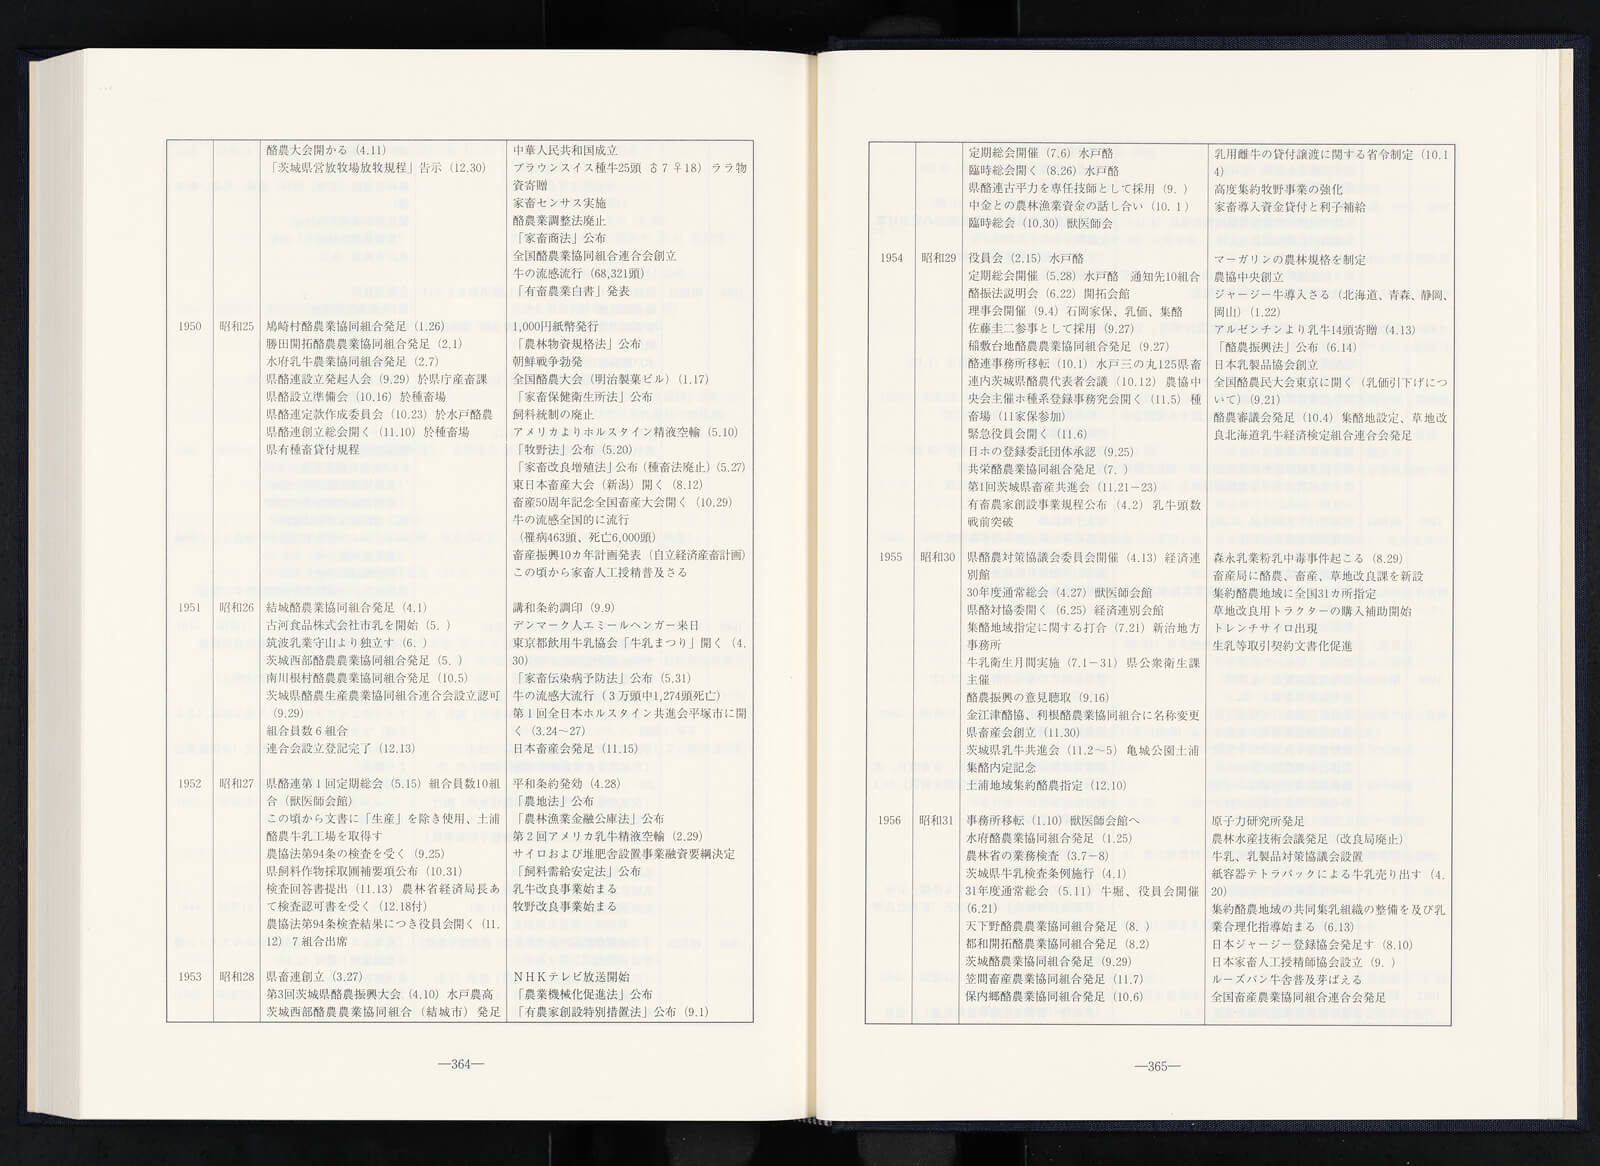 酪農大会開かる（4.11）
「茨城県営放牧場放牧規程」告示（12.30）
中華人民共和国成立
ブラウンスイス種牛25頭　♂７♀18）ララ物
資寄贈
家畜センサス実施
酪農業調整法廃止
「家畜商法」公布
全国酪農業協同組合連合会創立
牛の流感流行（68,321頭）
「有畜農業白書」発表
1950
昭和25
鳩崎村酪農業協同組合発足（1.26）
勝田開拓酪農農業協同組合発足（2.1）
水府乳牛農業協同組合発足（2.7）
県酪連設立発起人会（9.29）於県庁産畜課
県酪設立準備会（10.16）於種畜場
県酪連定款作成委員会（10.23）於水戸酪農
県酪連創立総会開く（11.10）於種畜場
県有種畜貸付規程
1,000円紙幣発行
「農林物資規格法」公布
朝鮮戦争勃発
全国酪農大会（明治製菓ビル）（1.17）
「家畜保健衛生所法」公布
飼料統制の廃止
アメリカよりホルスタイン精液空輸（5.10）
「牧野法」公布（5.20）
「家畜改良増殖法」公布（種畜法廃止）（5.27）
東日本畜産大会（新潟）開く（8.12）
畜産50周年記念全国畜産大会開く（10.29）
牛の流感全国的に流行
（罹病463頭、死亡6,000頭）
畜産振興10カ年計画発表（自立経済産畜計画）
この頃から家畜人工授精普及さる
1951
昭和26
結城酪農業協同組合発足（4.1）
古河食品株式会社市乳を開始（5. ）
筑波乳業守山より独立す（6. ）
茨城西部酪農農業協同組合発足（5. ）
南川根村酪農農業協同組合発足（10.5）
茨城県酪農生産農業協同組合連合会設立認可
（9.29）
組合員数６組合
連合会設立登記完了（12.13）
講和条約調印（9.9）
デンマーク人エミールヘンガー来日
東京都飲用牛乳協会「牛乳まつり」開く（4.
30）
「家畜伝染病予防法」公布（5.31）
牛の流感大流行（３万頭中1,274頭死亡）
第１回全日本ホルスタイン共進会平塚市に開
く（3.24～27）
日本畜産会発足（11.15）
1952
昭和27
県酪連第１回定期総会（5.15）組合員数10組
合（獣医師会館）
この頃から文書に「生産」を除き使用、土浦
酪農牛乳工場を取得す
農協法第94条の検査を受く（9.25）
県飼料作物採取圃補要項公布（10.31）
検査回答書提出（11.13）農林省経済局長あ
て検査認可書を受く（12.18付）
農協法第94条検査結果につき役員会開く（11.
12）７組合出席
平和条約発効（4.28）
「農地法」公布
「農林漁業金融公庫法」公布
第２回アメリカ乳牛精液空輸（2.29）
サイロおよび堆肥舎設置事業融資要綱決定
「飼料需給安定法」公布
乳牛改良事業始まる
牧野改良事業始まる
1953
昭和28
県畜連創立（3.27）
第3回茨城県酪農振興大会（4.10）水戸農高
茨城西部酪農農業協同組合（結城市）発足
ＮＨＫテレビ放送開始
「農業機械化促進法」公布
「有農家創設特別措置法」公布（9.1）
―364―
定期総会開催（7.6）水戸酪
臨時総会開く（8.26）水戸酪
県酪連古平力を専任技師として採用（9. ）
中金との農林漁業資金の話し合い（10. 1 ）
臨時総会（10.30）獣医師会
乳用雌牛の貸付譲渡に関する省令制定（10.1
4）
高度集約牧野事業の強化
家畜導入資金貸付と利子補給
1954
昭和29
役員会（2.15）水戸酪
定期総会開催（5.28）水戸酪　通知先10組合
酪振法説明会（6.22）開拓会館
理事会開催（9.4）石岡家保、乳価、集酪
佐藤圭二参事として採用（9.27）
稲敷台地酪農農業協同組合発足（9.27）
酪連事務所移転（10.1）水戸三の丸125県畜
連内茨城県酪農代表者会議（10.12）農協中
央会主催ホ種系登録事務究会開く（11.5）種
畜場（11家保参加）
緊急役員会開く（11.6）
日ホの登録委託団体承認（9.25）
共栄酪農業協同組合発足（7. ）
第1回茨城県畜産共進会（11.21－23）
有畜農家創設事業規程公布（4.2）乳牛頭数
戦前突破
マーガリンの農林規格を制定
農協中央創立
ジャージー牛導入さる（北海道、青森、静岡、
岡山）（1.22）
アルゼンチンより乳牛14頭寄贈（4.13）
「酪農振興法」公布（6.14）
日本乳製品協会創立
全国酪農民大会東京に開く（乳価引下げにつ
いて）（9.21）
酪農審議会発足（10.4）集酪地設定、草地改
良北海道乳牛経済検定組合連合会発足
1955
昭和30
県酪農対策協議会委員会開催（4.13）経済連
別館
30年度通常総会（4.27）獣医師会館
県酪対協委開く（6.25）経済連別会館
集酪地域指定に関する打合（7.21）新治地方
事務所
牛乳衛生月間実施（7.1－31）県公衆衛生課
主催
酪農振興の意見聴取（9.16）
金江津酪協、利根酪農業協同組合に名称変更
県畜産会創立（11.30）
茨城県乳牛共進会（11.2～5）亀城公園土浦
集酪内定記念
土浦地域集約酪農指定（12.10）
森永乳業粉乳中毒事件起こる（8.29）
畜産局に酪農、畜産、草地改良課を新設
集約酪農地域に全国31カ所指定
草地改良用トラクターの購入補助開始
トレンチサイロ出現
生乳等取引契約文書化促進
1956
昭和31
事務所移転（1.10）獣医師会館へ
水府酪農業協同組合発足（1.25）
農林省の業務検査（3.7－8）
茨城県牛乳検査条例施行（4.1）
31年度通常総会（5.11）牛堀、役員会開催
（6.21）
天下野酪農農業協同組合発足（8. ）
都和開拓酪農業協同組合発足（8.2）
茨城酪農業協同組合発足（9.29）
笠間畜産農業協同組合発足（11.7）
保内郷酪農業協同組合発足（10.6）
原子力研究所発足
農林水産技術会議発足（改良局廃止）
牛乳、乳製品対策協議会設置
紙容器テトラパックによる牛乳売り出す（4.
20）
集約酪農地域の共同集乳組織の整備を及び乳
業合理化指導始まる（6.13）
日本ジャージー登録協会発足す（8.10）
日本家畜人工授精師協会設立（9. ）
ルーズバン牛舎普及芽ばえる
全国畜産農業協同組合連合会発足
―365―